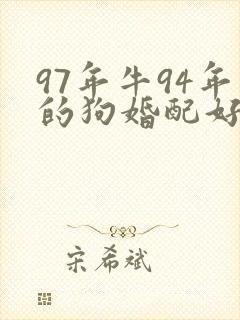 97年牛94年
的狗婚配好
宋希斌